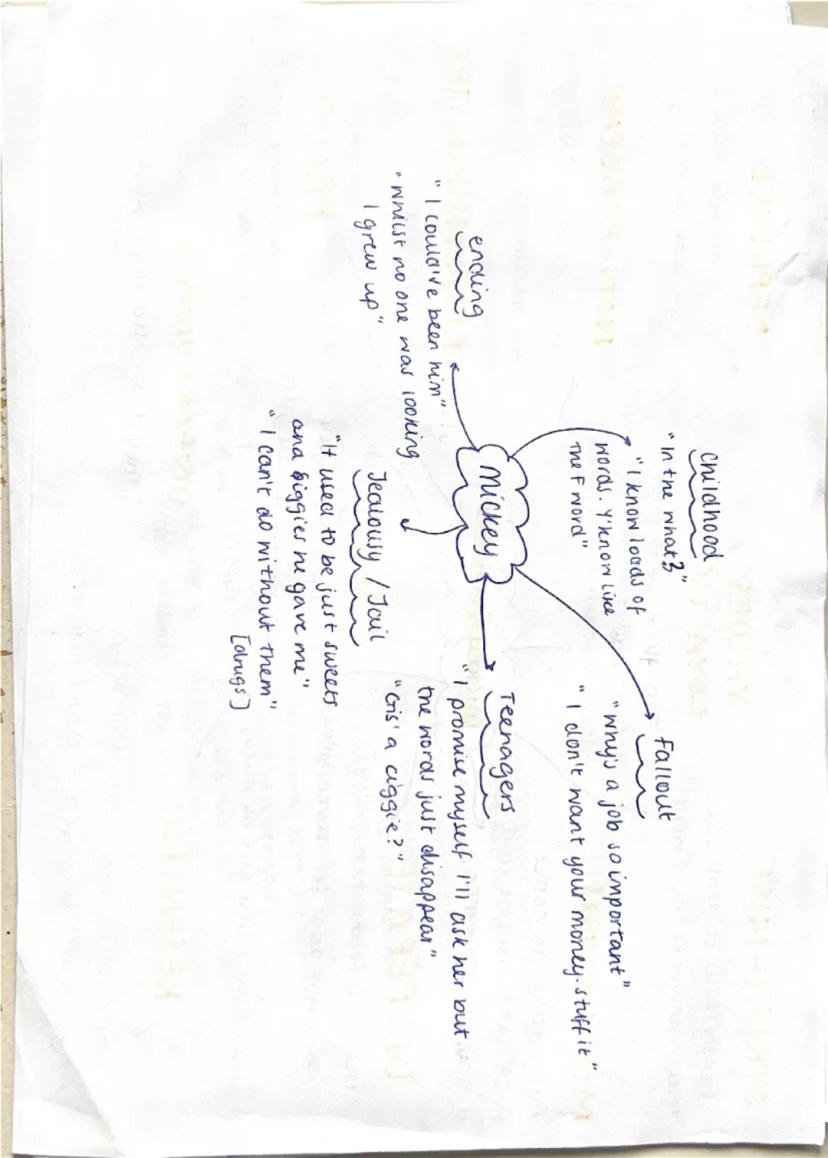 Childhood
"In the what?"
"I know loads of
words. Y'know like
the F word"
Fallout
"Why's a job so important"
"I don't want your money. stuff it"
Mickey
Teenagers
"I promise myself I'll ask her but
the words just disappear"
"Gis' a ciggie?"
ending
"I could've been him"
"Whilst no one was looking
I grew up"
Jealousy / Jail
"It used to be just sweets
and ciggies he gave me"
"I can't do without them"
[drugs]